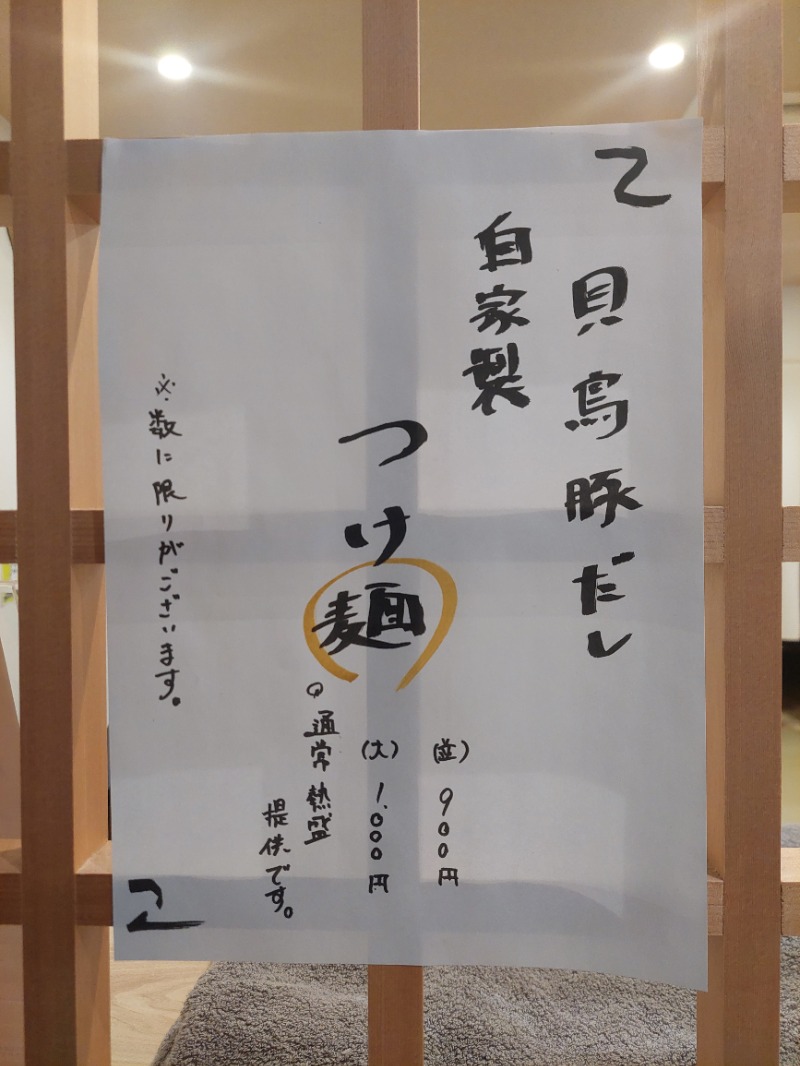 貝鳥豚だし
自家製
つけ麺
(並) 900円
(大) 1.000円
通常熱盛
提供です。
※数に限りがございます。